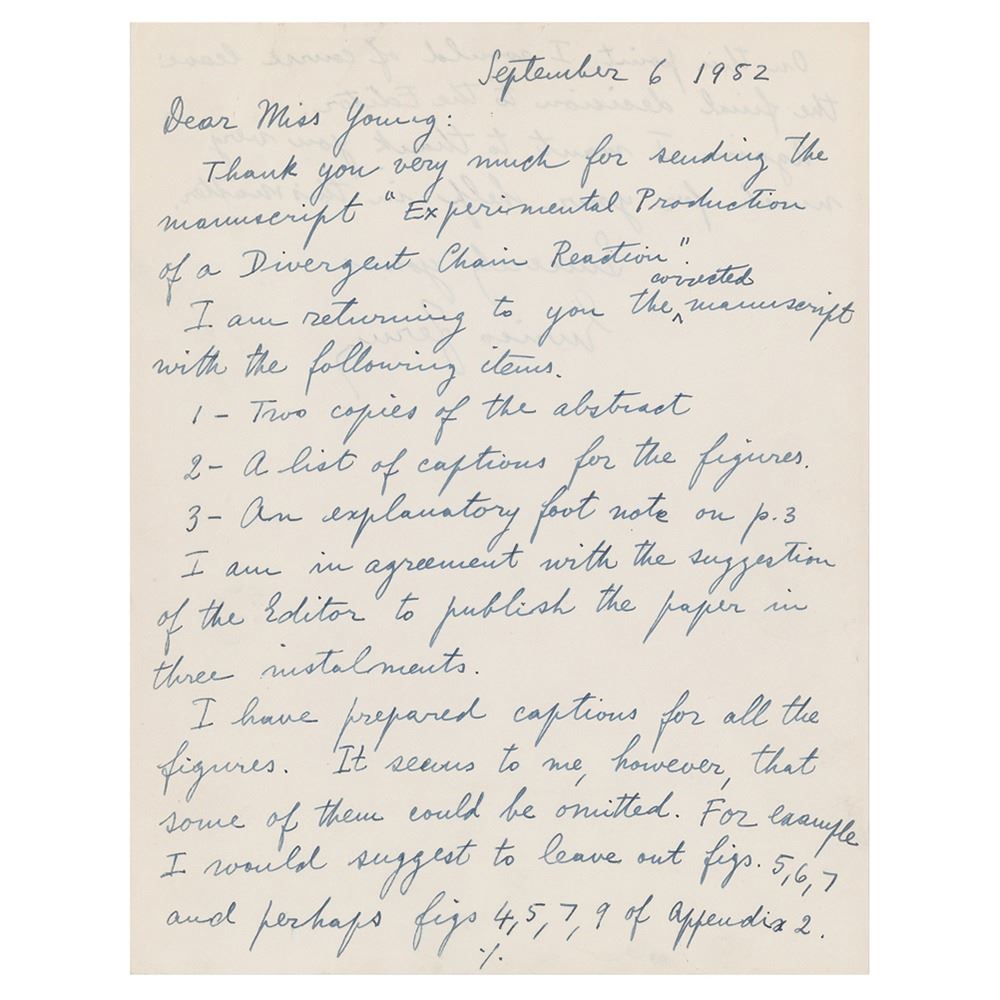 September 6 1952
Dear Miss Young:
Thank you very much for sending the
manuscript "Experimental Production
of a Divergent Chain Reaction".
corrected
I am returning to you the ‸ manuscript
with the following items.
1 - Two copies of the abstract
2 - A list of captions for the figures.
3 - An explanatory foot note on p.3
I am in agreement with the suggestion
of the Editor to publish the paper in
three instalments.
I have prepared captions for all the
figures. It seems to me, however, that
some of them could be omitted. For example
I would suggest to leave out figs. 5,6,7
and perhaps figs 4,5,7,9 of Appendix 2.
./.